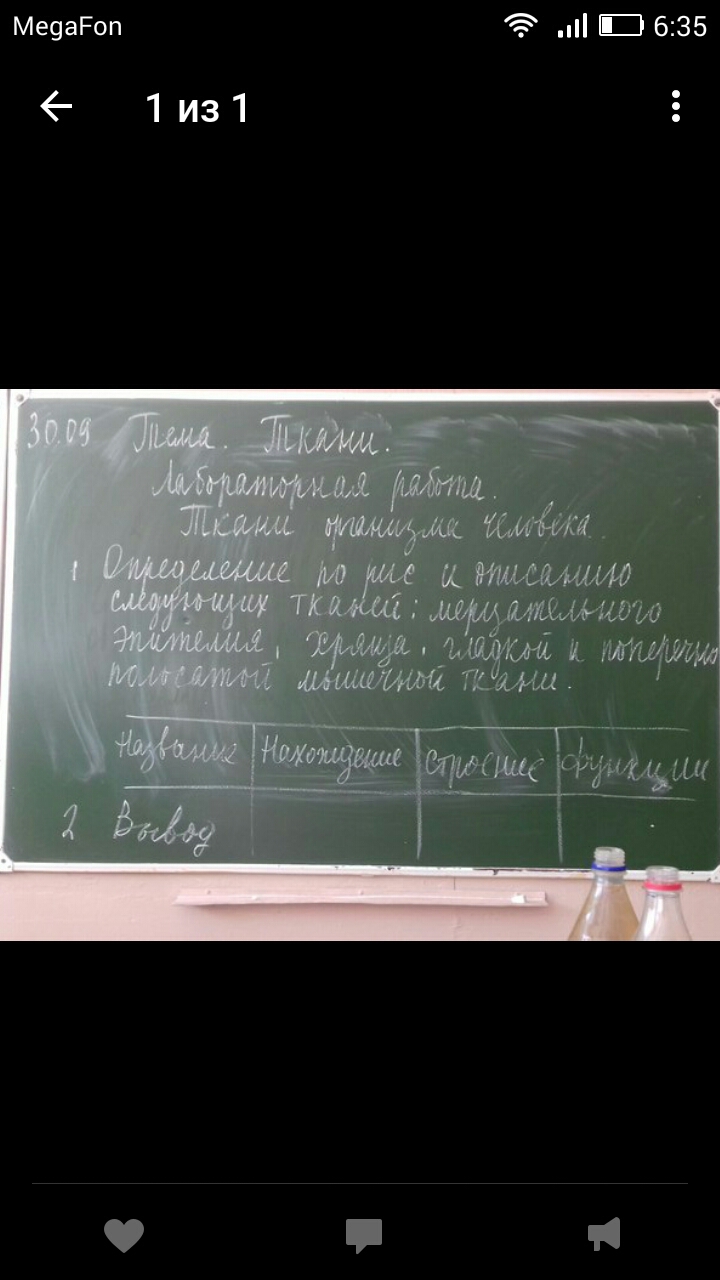 MegaFon 6:35
1 из 1
30.09 Тема. Ткани.
Лабораторная работа.
Ткани организма человека.
1 Определение по рис и описанию
следующих тканей: мерцательного
эпителия, хряща, гладкой и поперечно
полосатой мышечной ткани.
Название Нахождение строение функции
2 Вывод